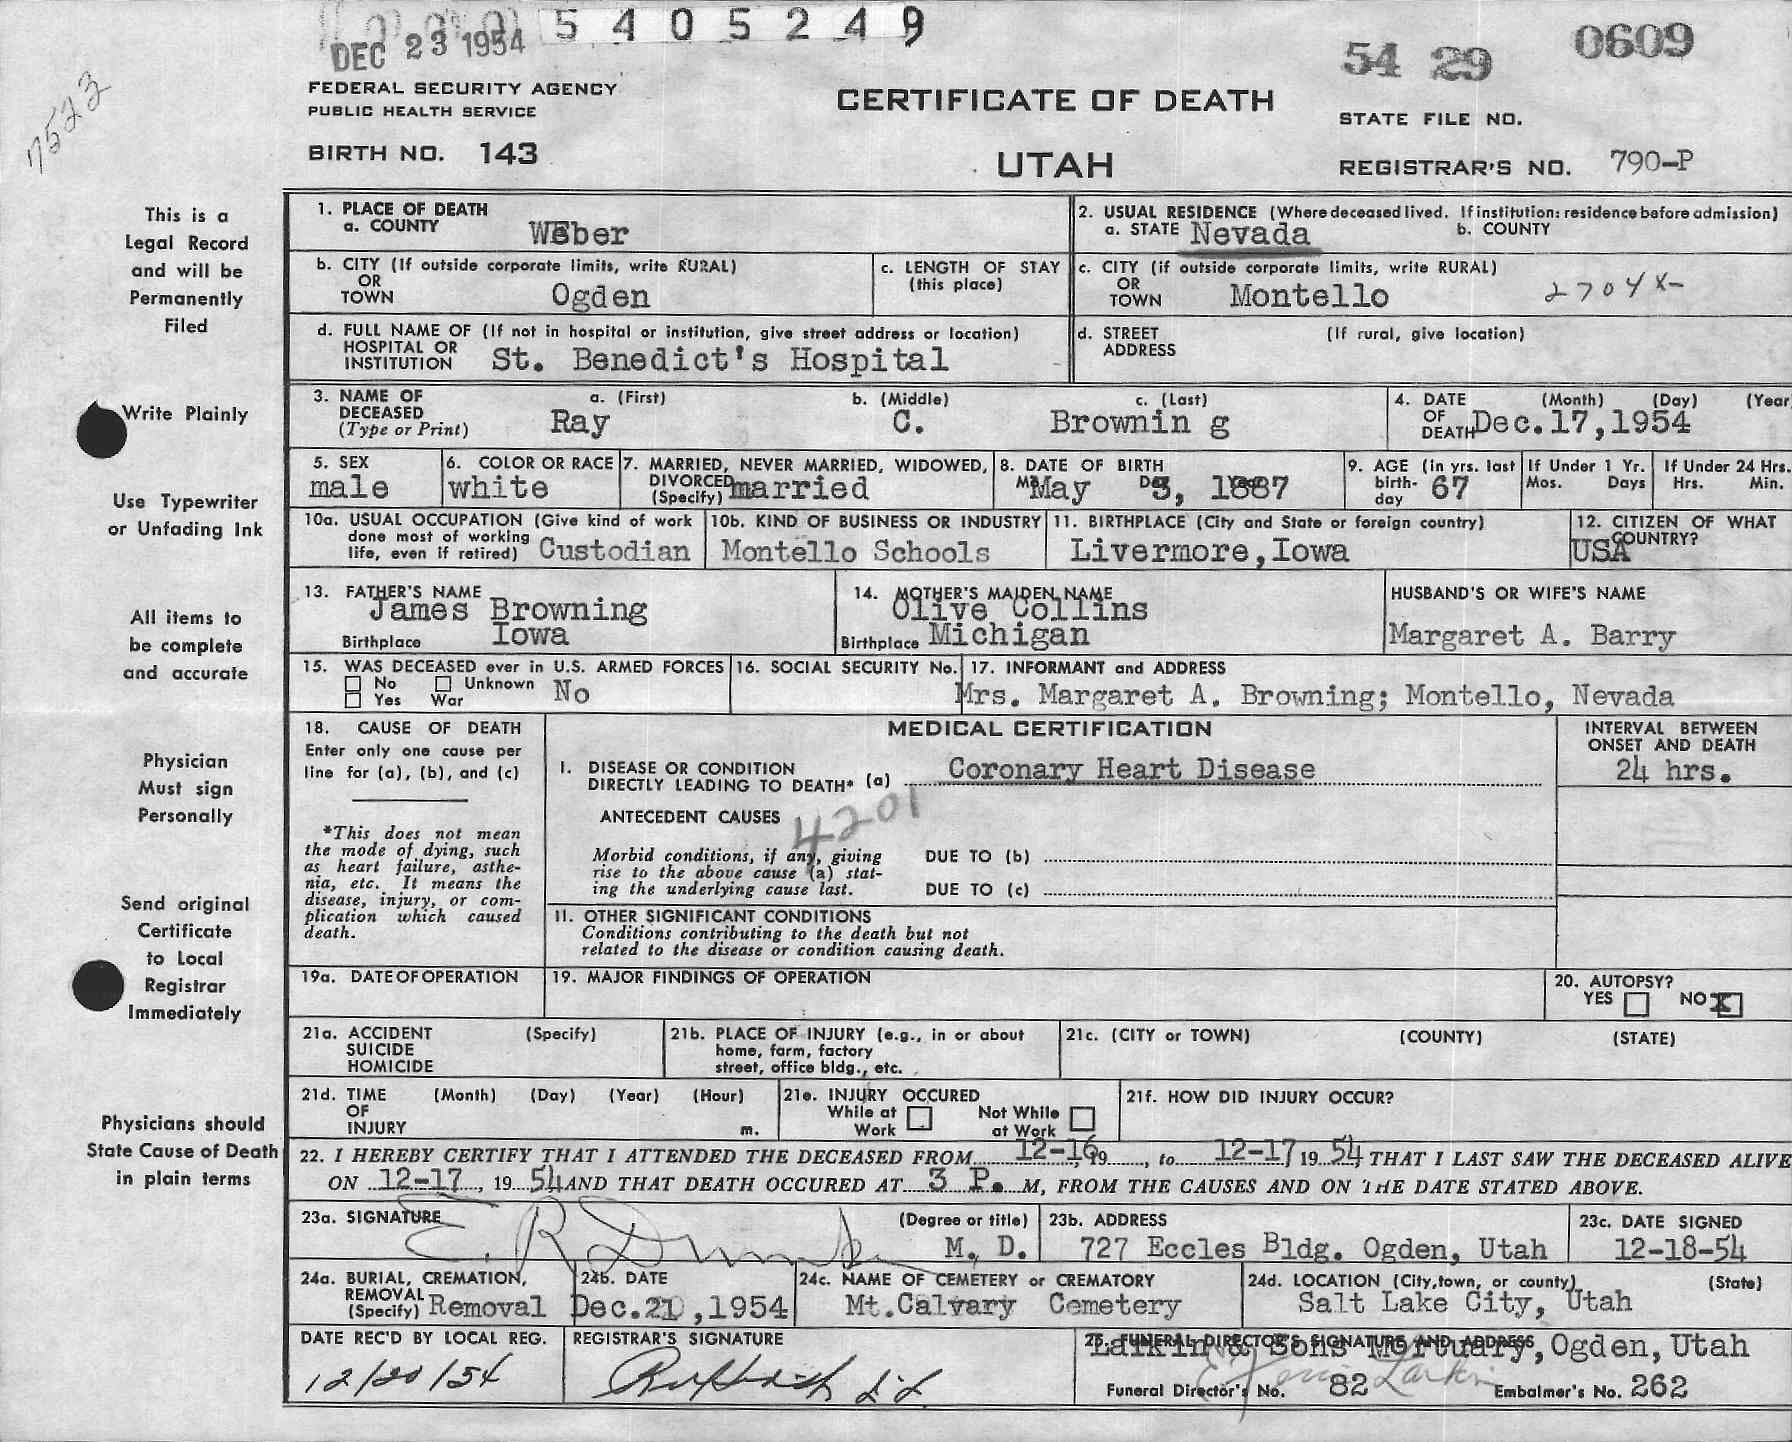 DEC 23 1954 5 4 0 5 2 4 9
54 29 0609
7523
FEDERAL SECURITY AGENCY
PUBLIC HEALTH SERVICE
CERTIFICATE OF DEATH
STATE FILE NO.
BIRTH NO. 143
UTAH
REGISTRAR'S NO. 790-P
This is a
Legal Record
and will be
Permanently
Filed
Write Plainly
Use Typewriter
or Unfading Ink
All items to
be complete
and accurate
Physician
Must sign
Personally
Send original
Certificate
to Local
Registrar
Immediately
Physicians should
State Cause of Death
in plain terms
1. PLACE OF DEATH
a. COUNTY Weber
2. USUAL RESIDENCE (Where deceased lived. If institution: residence before admission)
a. STATE Nevada b. COUNTY
b. CITY (If outside corporate limits, write RURAL)
OR
TOWN Ogden
c. LENGTH OF STAY
(this place)
c. CITY (if outside corporate limits, write RURAL)
OR
TOWN Montello 2704X-
d. FULL NAME OF (If not in hospital or institution, give street address or location)
HOSPITAL OR
INSTITUTION St. Benedict's Hospital
d. STREET (If rural, give location)
ADDRESS
3. NAME OF a. (First) b. (Middle) c. (Last)
DECEASED
(Type or Print) Ray C. Brownin g
4. DATE (Month) (Day) (Year
OF
DEATH Dec.17,1954
5. SEX
male
6. COLOR OR RACE
white
7. MARRIED, NEVER MARRIED, WIDOWED,
DIVORCED
(Specify) married
8. DATE OF BIRTH
May 3, 1887
9. AGE (in yrs. last
birth-
day 67
If Under 1 Yr.
Mos. Days
If Under 24 Hrs.
Hrs. Min.
10a. USUAL OCCUPATION (Give kind of work
done most of working
life, even if retired) Custodian
10b. KIND OF BUSINESS OR INDUSTRY
Montello Schools
11. BIRTHPLACE (City and State or foreign country)
Livermore,Iowa
12. CITIZEN OF WHAT
COUNTRY?
USA
13. FATHER'S NAME
James Browning
Birthplace Iowa
14. MOTHER'S MAIDEN NAME
Olive Collins
Birthplace Michigan
HUSBAND'S OR WIFE'S NAME
Margaret A. Barry
15. WAS DECEASED ever in U.S. ARMED FORCES
No Unknown No
Yes War
16. SOCIAL SECURITY No.
17. INFORMANT and ADDRESS
Mrs. Margaret A. Browning; Montello, Nevada
18. CAUSE OF DEATH
Enter only one cause per
line for (a), (b), and (c)
*This does not mean
the mode of dying, such
as heart failure, asthe-
nia, etc. It means the
disease, injury, or com-
plication which caused
death.
MEDICAL CERTIFICATION
I. DISEASE OR CONDITION
DIRECTLY LEADING TO DEATH* (a) Coronary Heart Disease
ANTECEDENT CAUSES 4201
Morbid conditions, if any, giving
rise to the above cause (a) stat-
ing the underlying cause last.
DUE TO (b)
DUE TO (c)
II. OTHER SIGNIFICANT CONDITIONS
Conditions contributing to the death but not
related to the disease or condition causing death.
INTERVAL BETWEEN
ONSET AND DEATH
24 hrs.
19a. DATE OF OPERATION
19. MAJOR FINDINGS OF OPERATION
20. AUTOPSY?
YES NO X
21a. ACCIDENT (Specify)
SUICIDE
HOMICIDE
21b. PLACE OF INJURY (e.g., in or about
home, farm, factory
street, office bldg., etc.
21c. (CITY or TOWN) (COUNTY) (STATE)
21d. TIME (Month) (Day) (Year) (Hour)
OF
INJURY m.
21e. INJURY OCCURED
While at Work
Not While at Work
21f. HOW DID INJURY OCCUR?
22. I HEREBY CERTIFY THAT I ATTENDED THE DECEASED FROM 12-16, 19, to 12-17 19 54 THAT I LAST SAW THE DECEASED ALIVE
ON 12-17, 19 54 AND THAT DEATH OCCURED AT 3 P. M, FROM THE CAUSES AND ON THE DATE STATED ABOVE.
23a. SIGNATURE (Degree or title)
E. R. M. D.
23b. ADDRESS
727 Eccles Bldg. Ogden, Utah
23c. DATE SIGNED
12-18-54
24a. BURIAL, CREMATION,
REMOVAL
(Specify) Removal
24b. DATE
Dec. ,1954
24c. NAME OF CEMETERY or CREMATORY
Mt.Calvary Cemetery
24d. LOCATION (City,town, or county) (State)
Salt Lake City, Utah
DATE REC'D BY LOCAL REG.
12/20/54
REGISTRAR'S SIGNATURE
25. FUNERAL DIRECTOR'S SIGNATURE AND ADDRESS
Larkin & Sons Mortuary,Ogden, Utah
Larkin
Funeral Director's No. 82 Embalmer's No. 262